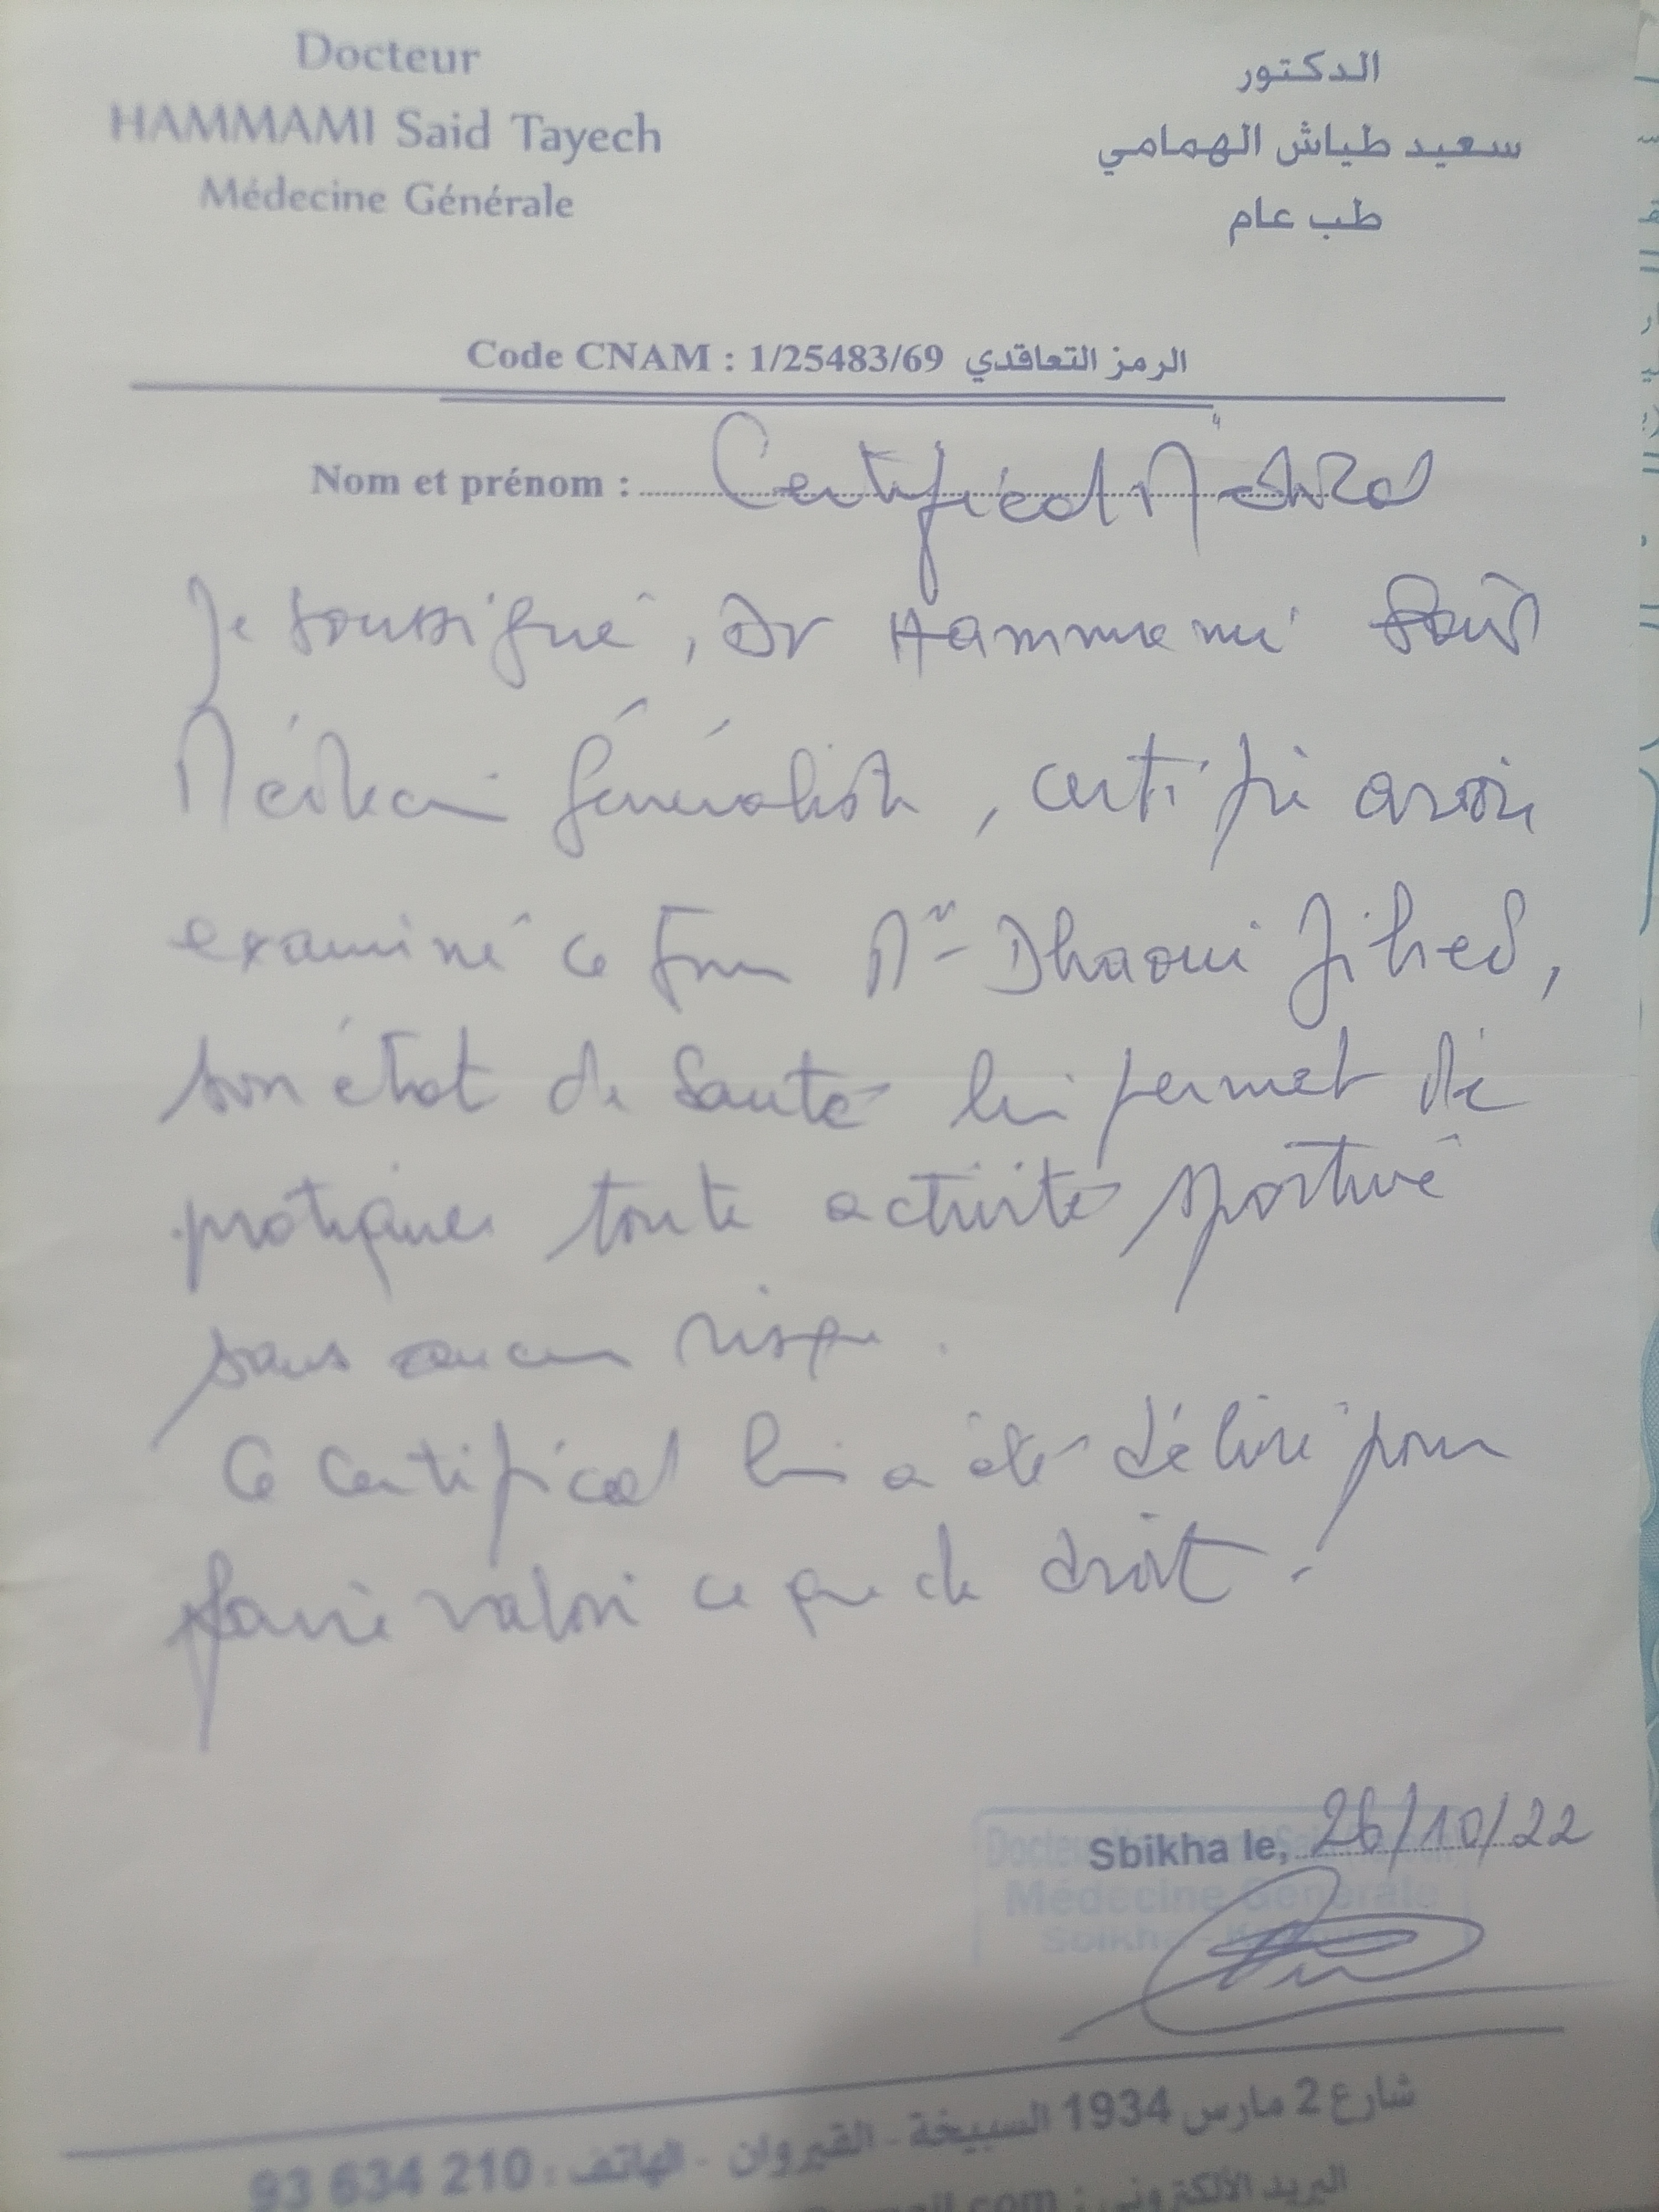 Docteur
HAMMAMI Said Tayech
Médecine Générale
الدكتور
سعيد طياش الهمامي
طب عام
Code CNAM : 1/25483/69 الرمز التعاقدي
Nom et prénom : Certificat Médical
Je soussigné, Dr Hammami Said
Médecin Généraliste, certifie avoir
examiné ce jour Mr Dhaoui Jihed,
son état de santé lui permet de
pratiquer toute activité sportive
sans aucun risque.
Ce certificat lui a été délivré pour
faire valoir ce que de droit.
Sbikha le, 26/10/22
Docteur
Médecine Générale
Sbikha
شارع 2 مارس 1934 السبيخة - القيروان - الهاتف : 93 634 210
البريد الالكتروني :